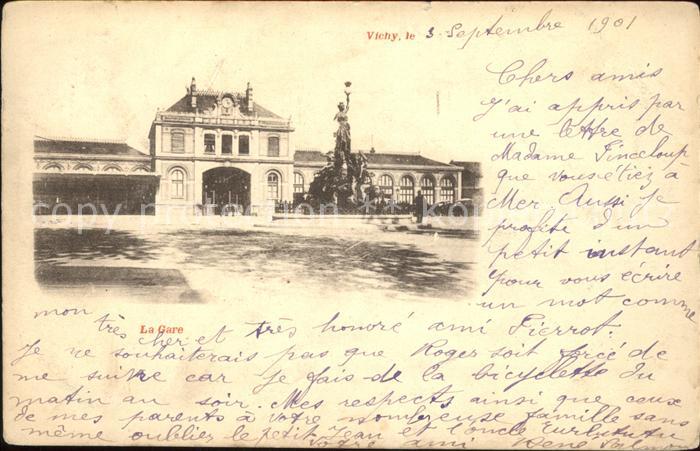 Vichy, le 3 Septembre 1901
Chers amis
J'ai appris par
une lettre de
Madame Pinceloup
que vous étiez à
Mer. Aussi je
profite d'un
petit instant
pour vous écrire
un mot comme
copy-postcard-copyright
La Gare
mon très cher et très honoré ami Pierrot.
Je ne souhaiterais pas que Roger soit forcé de
me suivre car je fais de la bicyclette du
matin au soir. Mes respects ainsi que ceux
de mes parents à votre nombreuse famille sans
même oublier le petit Jean et l'oncle
Votre ami René